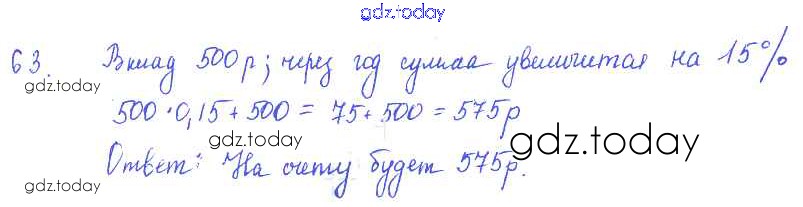 gdz.today
63. Вклад 500р; через год сумма увеличится на 15%
gdz.today
500·0,15+500 = 75+500 = 575р
gdz.today
gdz.today
Ответ: На счету будет 575р.
gdz.today
gdz.today